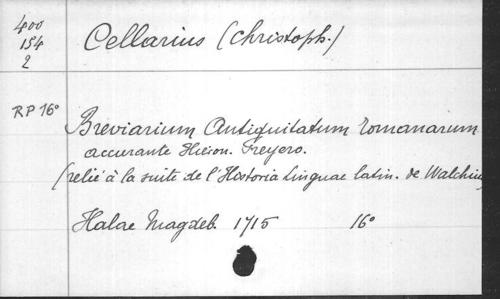 400
154
2
Cellarius (Christoph.)
RP 16°
Breviarium Antiquitatum romanarum
accurante Hieron. Freyero.
(relié à la suite de l'Historia Linguae latin. de Walchius
Halae Magdeb. 1715 16°